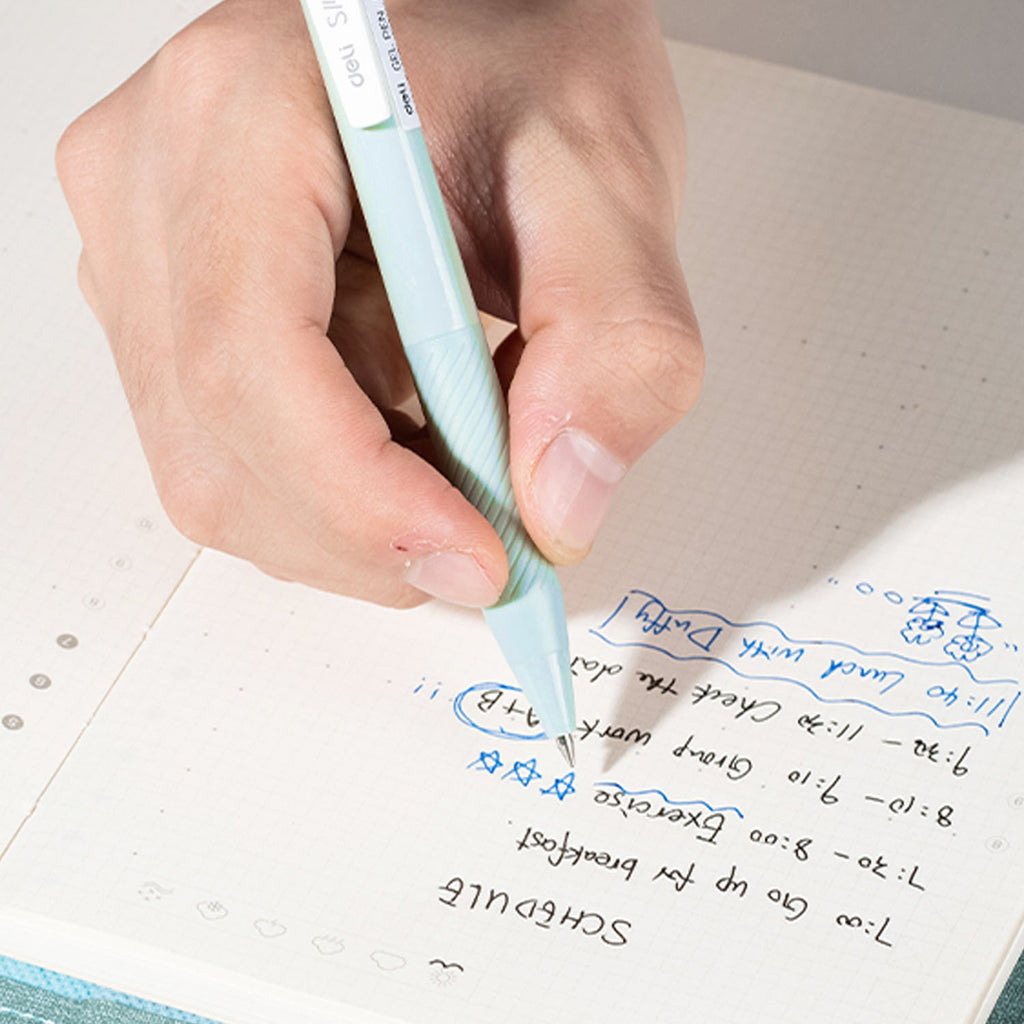 deli
deli GEL PEN
SCHEDULE
7:00 Go up for breakfast
7:30 - 8:00 Exercise
8:10 - 9:10 Group work A+B !!
9:30 - 11:30 Check the
11:40 Lunch with Duffy
10
9
8
7
6
5